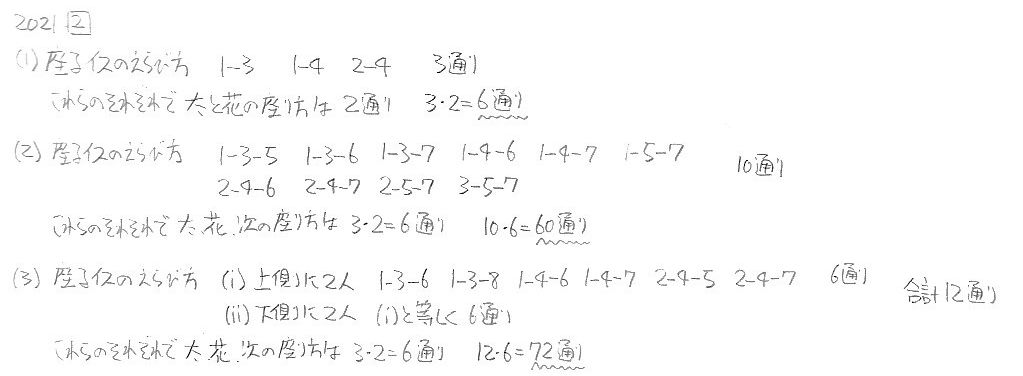 2021 2
(1) 座るイスのえらび方 1-3 1-4 2-4 3通り
これらのそれぞれで 太と花の座り方は 2通り 3・2=6通り
(2) 座るイスのえらび方 1-3-5 1-3-6 1-3-7 1-4-6 1-4-7 1-5-7 10通り
2-4-6 2-4-7 2-5-7 3-5-7
これらのそれぞれで 太、花、次の座り方は 3・2=6通り 10・6=60通り
(3) 座るイスのえらび方 (i) 上側に2人 1-3-6 1-3-8 1-4-6 1-4-7 2-4-5 2-4-7 6通り 合計12通り
(ii) 下側に2人 (i)と等しく 6通り
これらのそれぞれで 太、花、次の座り方は 3・2=6通り 12・6=72通り